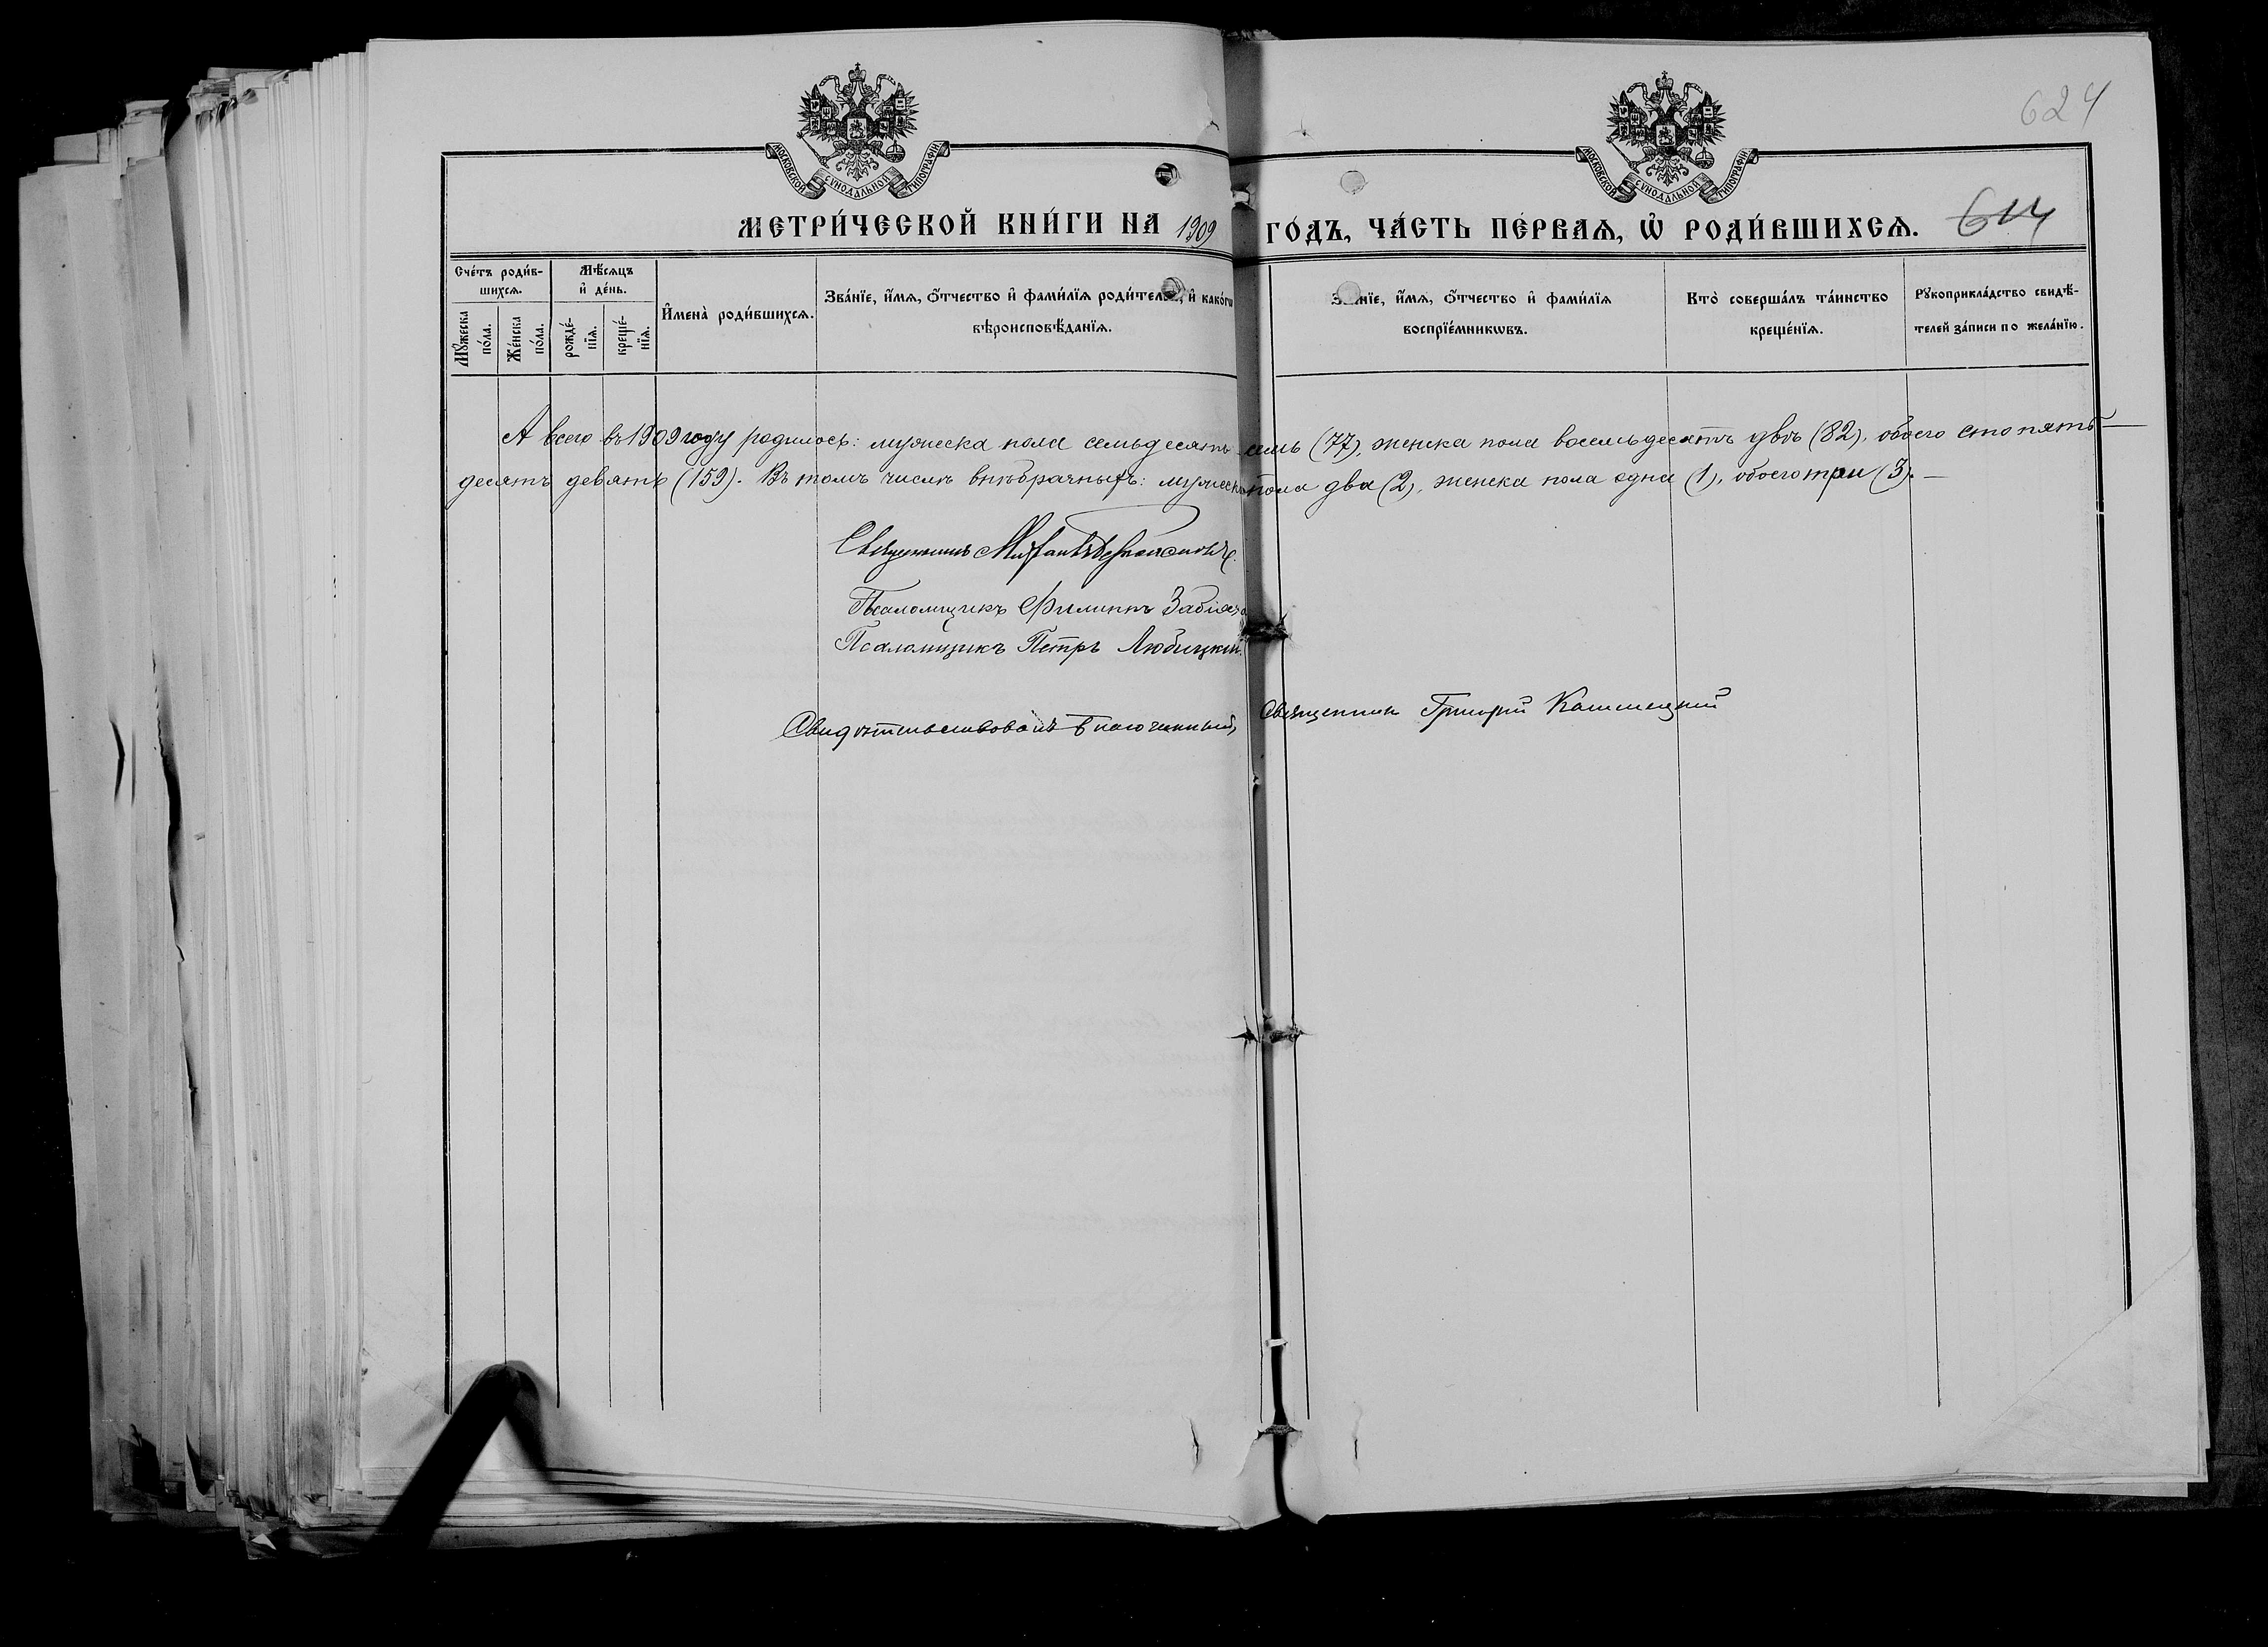 МОСКОВСКОЙ СУНОДАЛЬНОЙ ТИПОГРАФІИ
МОСКОВСКОЙ СУНОДАЛЬНОЙ ТИПОГРАФІИ
624
МЕТРИ́ЧЕСКОЙ КНИ́ГИ НА 1909 ГО́ДЪ, ЧА́СТЬ ПЕ́РВАѦ, Ѡ҆ РОДИ́ВШИХСѦ. 614
Сче́тъ роди́в-
шихсѧ.
Мꙋ́жеска по́ла.
Же́нска по́ла.
Мѣ́сѧцъ
и҆ де́нь.
рожде́-
нїѧ.
креще́-
нїѧ.
И҆мена̀ роди́вшихсѧ.
Зва́нїе, и҆́мѧ, ѻ҆́тчество и҆ фами́лїѧ роди́телей, и҆ како́гѡ
вѣроисповѣ́данїѧ.
Зва́нїе, и҆́мѧ, ѻ҆́тчество и҆ фами́лїѧ
воспрїе́мникѡвъ.
Кто̀ соверша́лъ та́инство
креще́нїѧ.
Рꙋкоприкла́дство свидѣ́-
телей за́писи по жела́нїю.
А всего въ 1909 году родилось: мужеска пола семьдесятъ семь (77), женска пола восемьдесятъ двѣ (82), обоего сто пять-
десятъ девять (159). Въ томъ числѣ внѣбрачныхъ: мужеска пола два (2), женска пола одна (1), обоего три (3). —
Священникъ
Псаломщикъ Филиппъ
Псаломщикъ Петръ Любицкій.
Свидѣтельствовалъ Благочинный, Священникъ Григорій